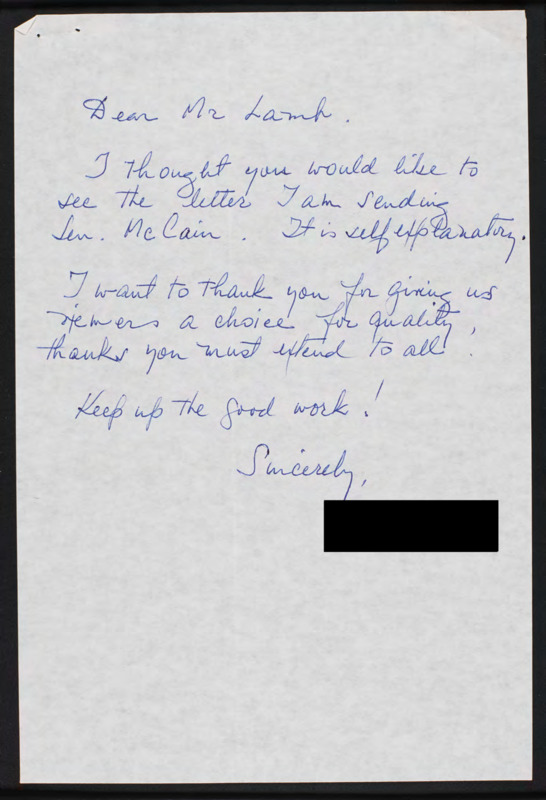 Dear Mr Lamb.
I thought you would like to
see the letter I am sending
Sen. McCain. It is self explanatory.
I want to thank you for giving us
viewers a choice for quality,
thanks you must extend to all.
Keep up the good work!
Sincerely,